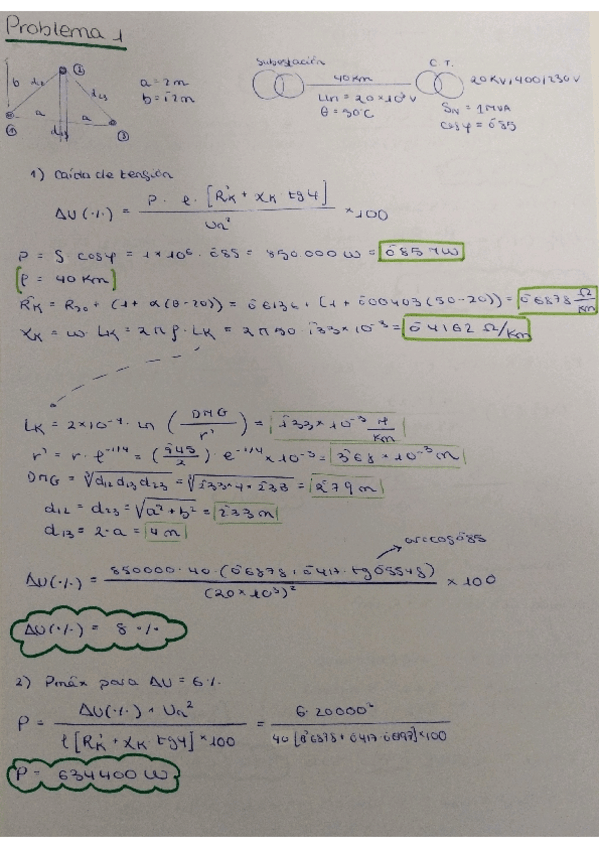 Problema 1
b d12 ② d23
① a a ③
d13
a = 2m
b = 1'2m
Subestación C.T.
40 Km 20 KV/400/230V
Un = 20×10³ V SN = 1 MVA
θ = 50°C cosφ = 0'85
1) Caída de tensión
ΔU(%) = P · l · [R'K + XK tgφ] / Un² × 100
P = S · cosφ = 1×10⁶ · 0'85 = 850 000 W = 0'85 MW
l = 40 Km
R'K = R20 · (1 + α(θ-20)) = 0'6136 · (1 + 0'00403(50-20)) = 0'6878 Ω/Km
XK = ω · LK = 2πf · LK = 2π50 · 1'33×10⁻³ = 0'4162 Ω/Km
LK = 2×10⁻⁴ · ln (DMG / r') = 1'33×10⁻³ H/Km
r' = r · e^-1/4 = (9'45/2) · e^-1/4 ×10⁻³ = 3'68 · 10⁻³ m
DMG = ∛d12 d13 d23 = ∛2'33·4·2'33 = 2'79 m
d12 = d23 = √a²+b² = 2'33 m
d13 = 2·a = 4 m
arccos 0'85
ΔU(%) = 850000 · 40 · (0'6878 + 0'417 · tg 0'5548) / (20×10³)² × 100
ΔU(%) = 8 %
2) Pmáx para ΔU = 6%
P = ΔU(%) · Un² / l [R'K + XK · tgφ] × 100 = 6 · 20000² / 40 [0'6878 + 0'417 · 0'6197] × 100
P = 634400 W